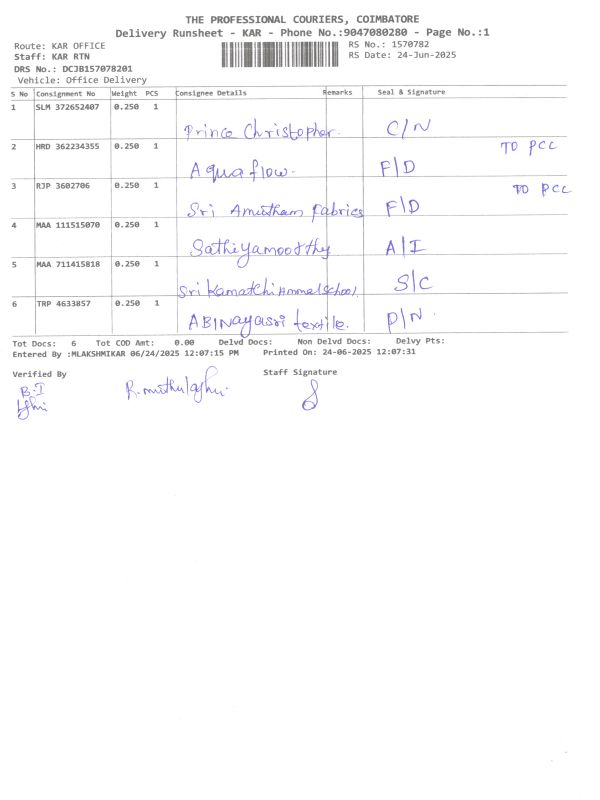 THE PROFESSIONAL COURIERS, COIMBATORE
Delivery Runsheet - KAR - Phone No.:9047080280 - Page No.:1
Route: KAR OFFICE
RS No.: 1570782
Staff: KAR RTN
RS Date: 24-Jun-2025
DRS No.: DCJB157078201
Vehicle: Office Delivery
S No Consignment No Weight PCS Consignee Details Remarks Seal & Signature
1 SLM 372652407 0.250 1
Prince Christopher. C/N
2 HRD 362234355 0.250 1 TO PCC
Aquaflow. F/D
3 RJP 3602706 0.250 1 TO PCC
Sri Amutham fabrics F/D
4 MAA 111515070 0.250 1
Sathiyamoorthy A/I
5 MAA 711415818 0.250 1
Sri Kamatchi Ammal School. S/C
6 TRP 4633857 0.250 1
ABINayasri textile. P/N.
Tot Docs: 6 Tot COD Amt: 0.00 Delvd Docs: Non Delvd Docs: Delvy Pts:
Entered By :MLAKSHMIKAR 06/24/2025 12:07:15 PM Printed On: 24-06-2025 12:07:31
Verified By
Staff Signature
B.I